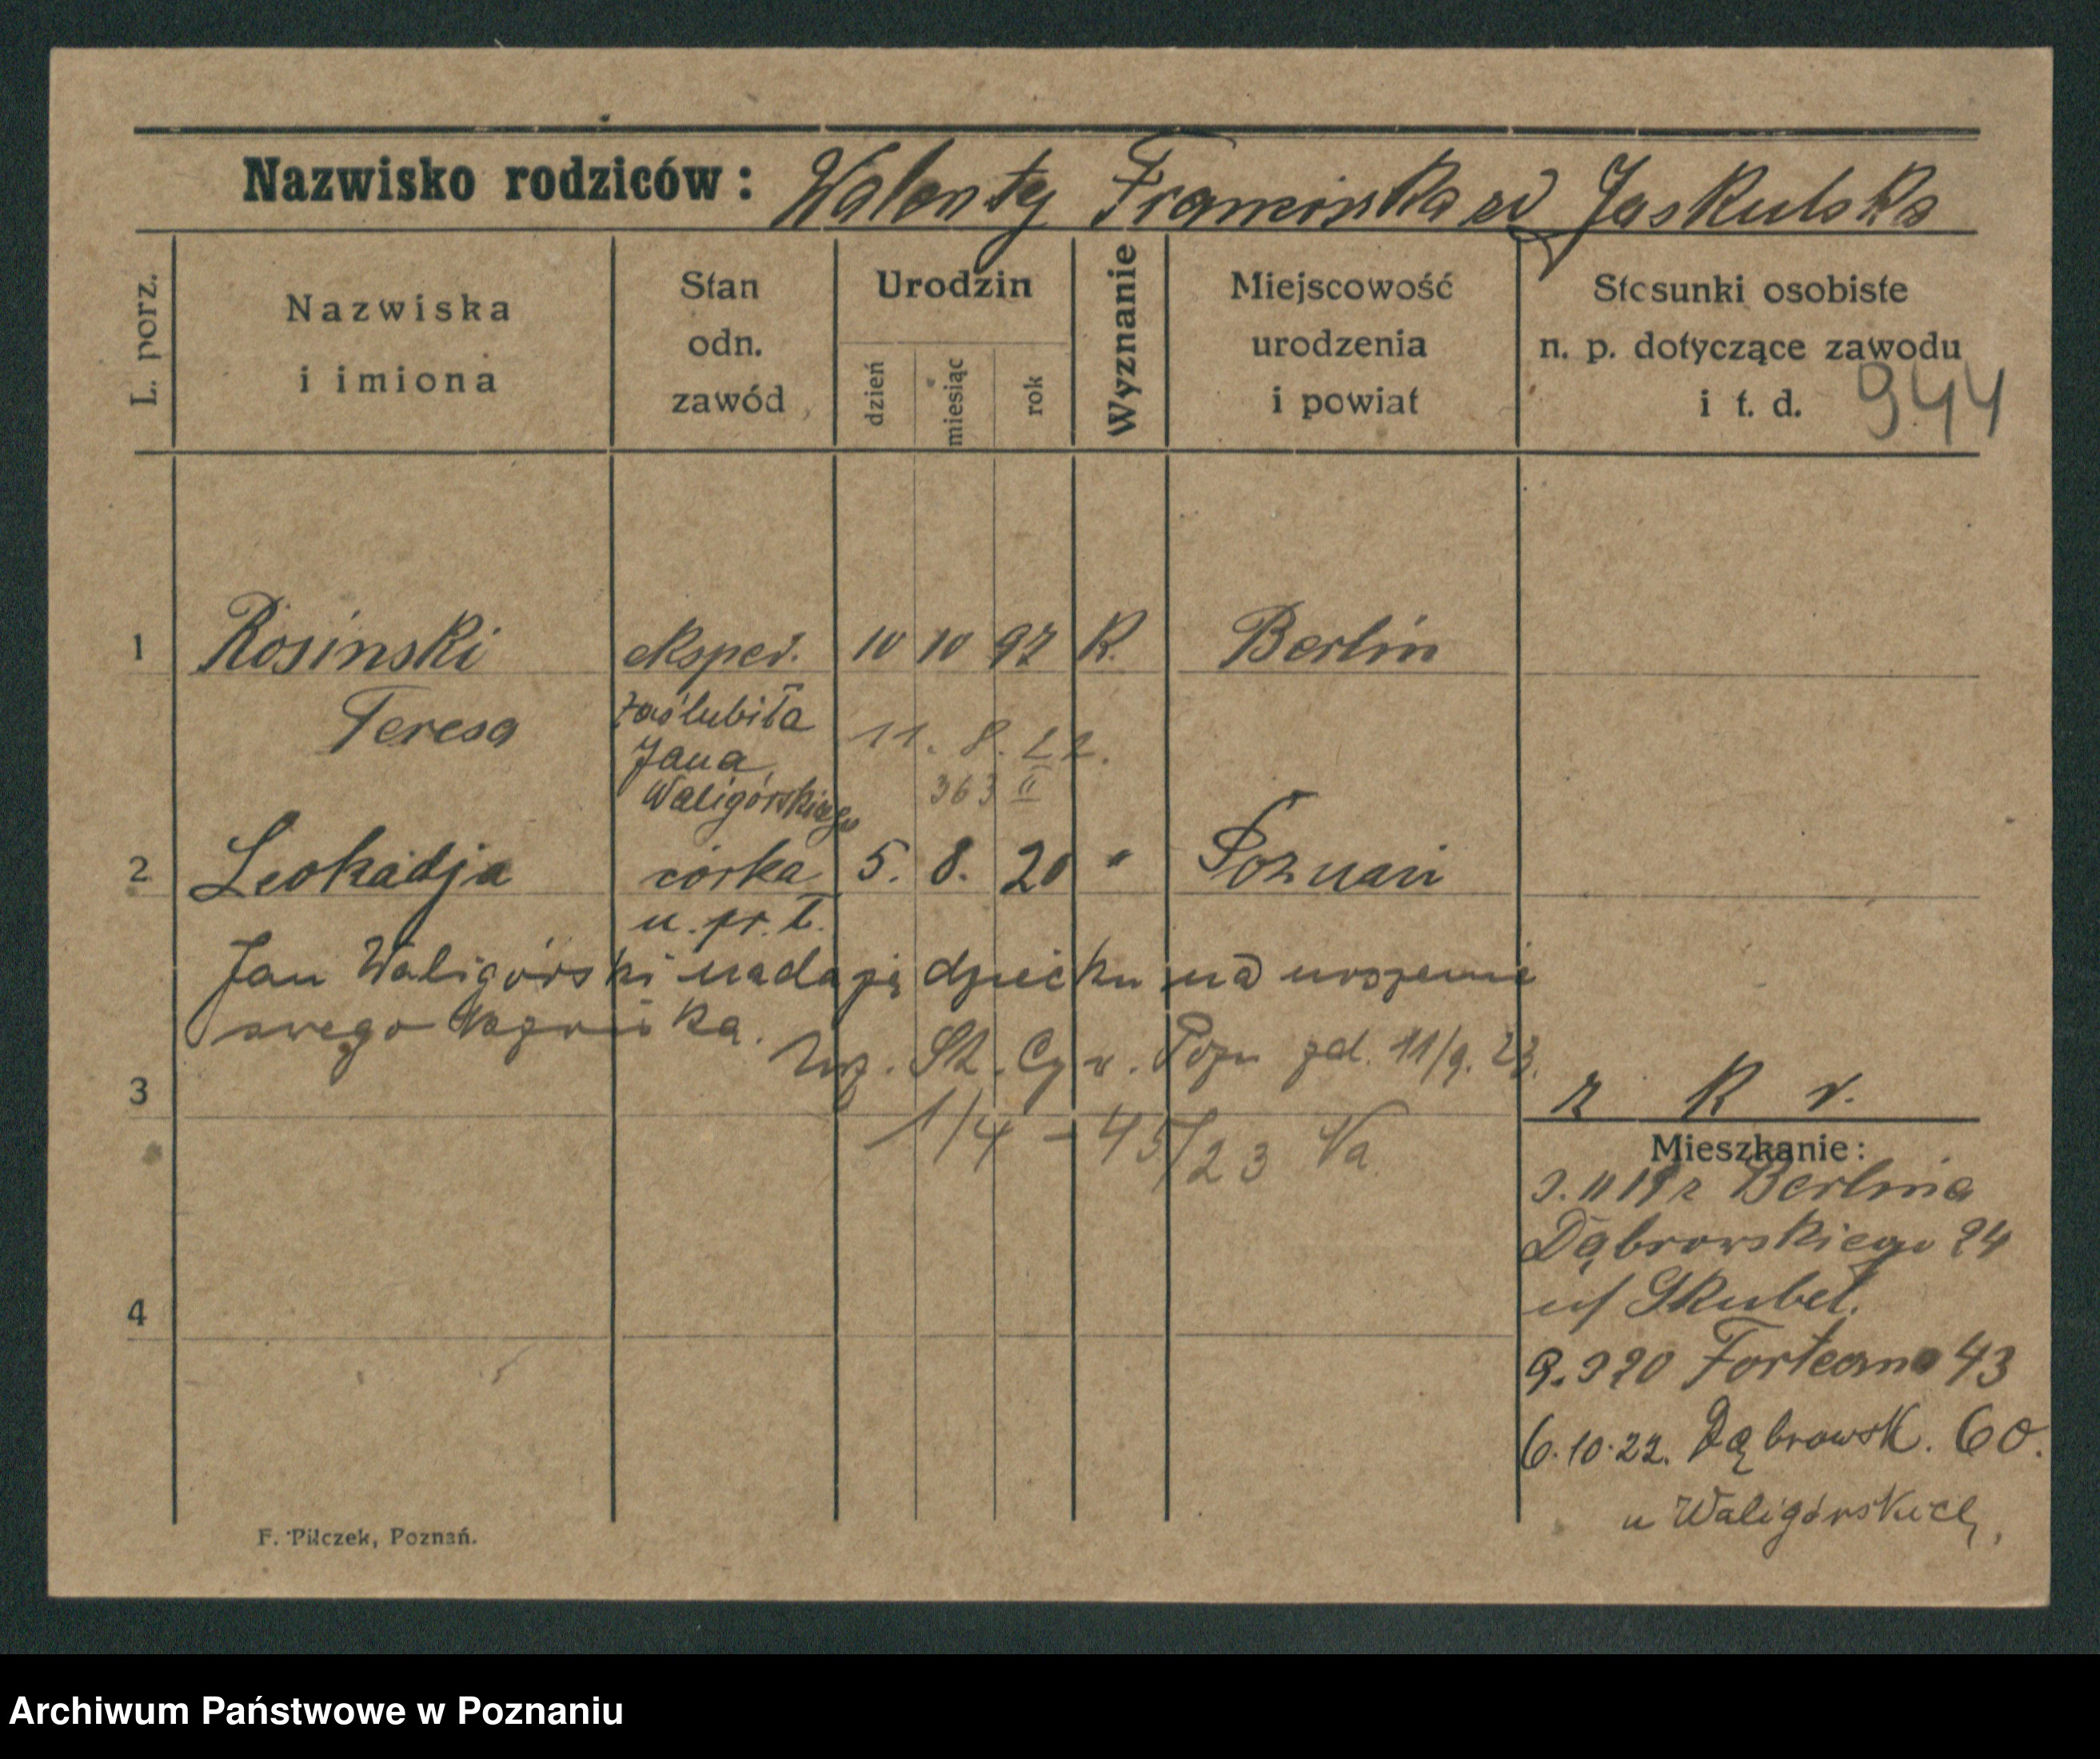 Nazwisko rodziców: Walenty Franciska zd Jaskulska
L. porz.
Nazwiska
i imiona
Stan
odn.
zawód
Urodzin
dzień
miesiąc
rok
Wyznanie
Miejscowość
urodzenia
i powiat
Stosunki osobiste
n. p. dotyczące zawodu
i t. d.
944
1 Rosinski eksped. 10 10 97 R. Berlin
Teresa
zaślubiła
Jana
Waligórskiego
11. 8. 22.
363 II
2 Leokadja córka 5. 8. 20 " Poznań
u. pr. t.
Jan Waligórski nadaje dziecku na
swego Nazwiska.
Urz. St. Cyw. Pozn zad. 11/9. 23.
3
r k v.
1/4 - 45/23 Va
Mieszkanie:
3. 11 19 z Berlina
Dąbrowskiego 24
u/ Skubel.
4
9. 3 20 Forteczna 43
6. 10. 22. Dąbrowsk. 60.
u Waligórskich,
F. Pilczek, Poznań.
Archiwum Państwowe w Poznaniu